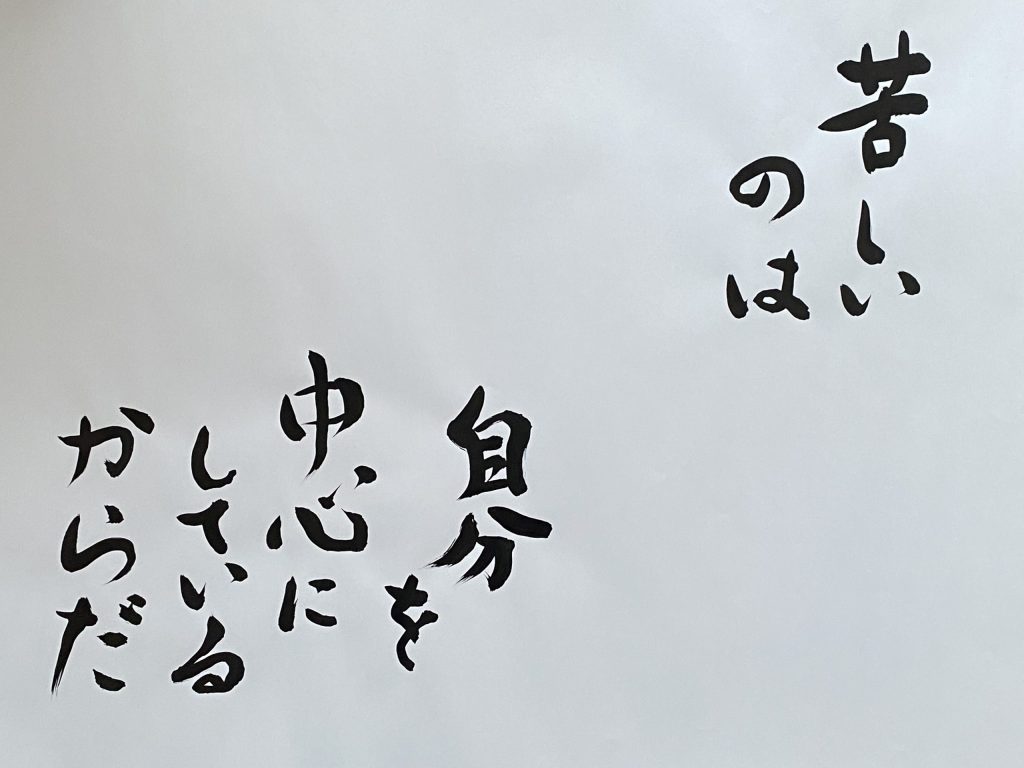 苦しい
のは
自分
を
中心に
している
からだ